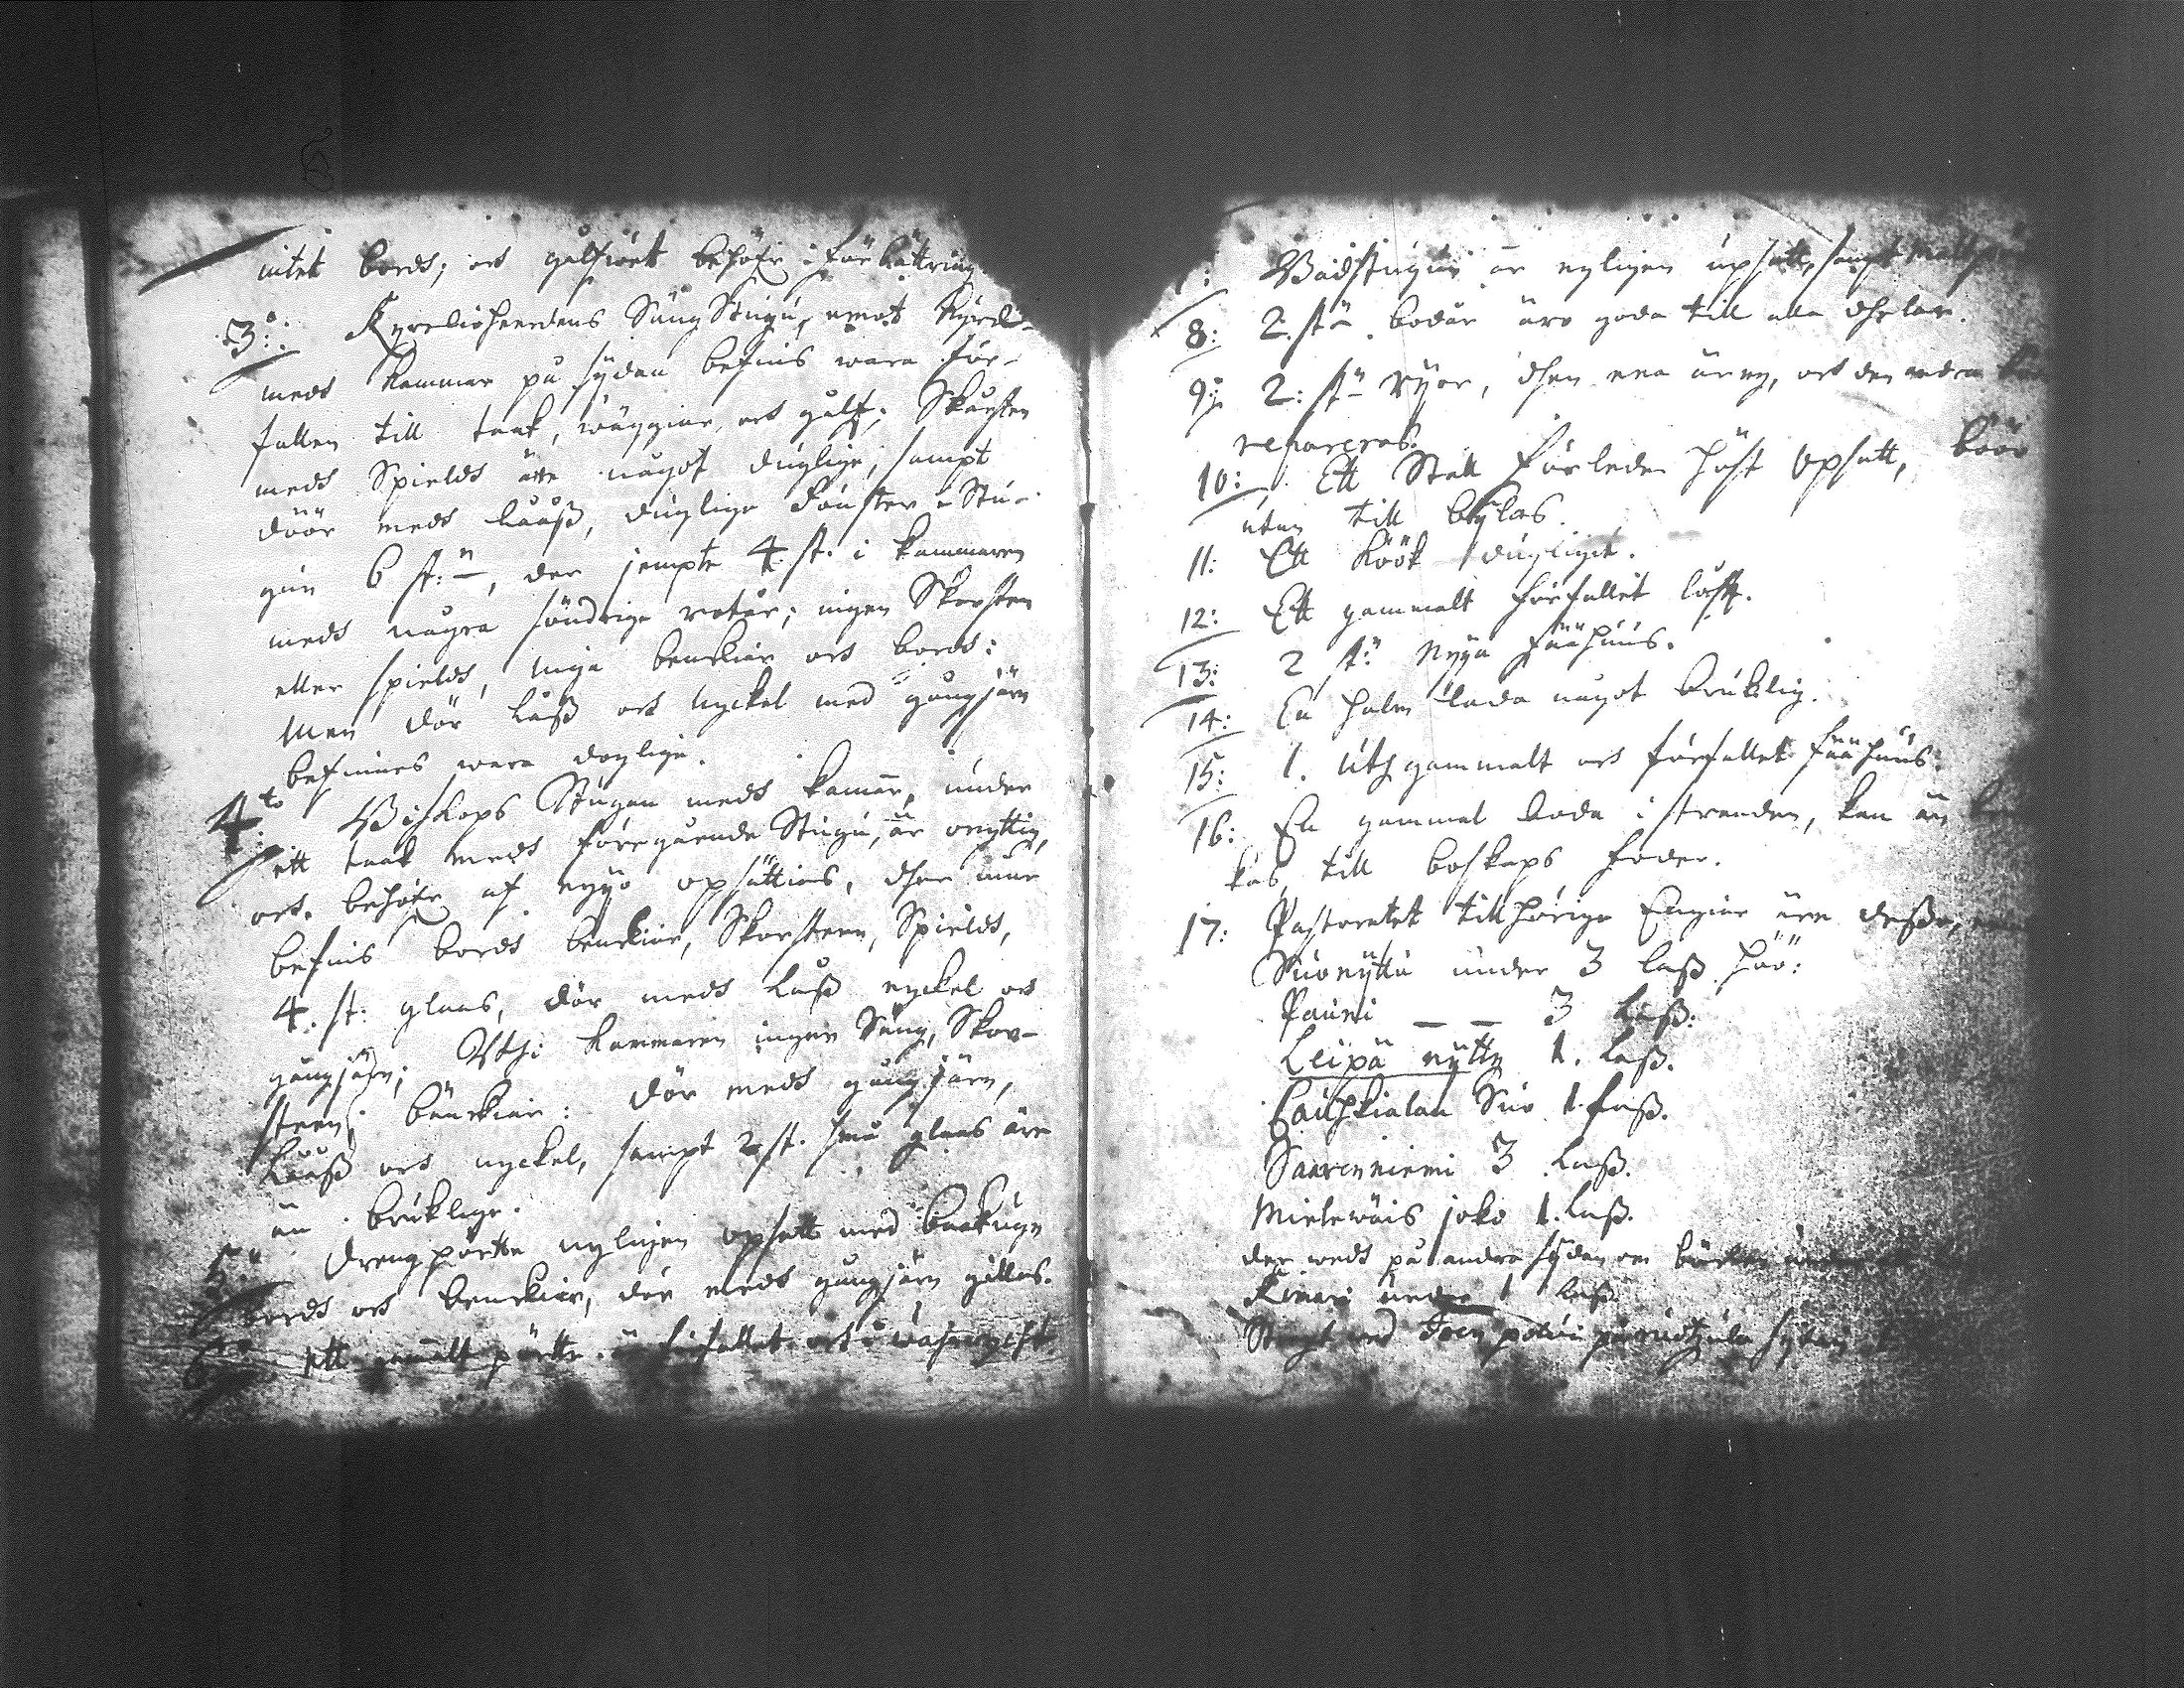 intet bord; och gålfwet behöfr i förbättring
3:o Kyrckioheerdens Sängstugu, emot
medh kammar på sydan befins wara för-
fallen till taak, wäggiar, och gålf; Skorsten
medh Spield ähre något duglige, sampt
döör medh Lååß, duglige fönster i Stu-
gun 6 st:n, der jempte 4 st. i kammaren
medh några söndrige rutår; ingen Skorsten
eller spield, inga benckiar och bord:
Men dör Låß och nyckel med gångjärn
befinnes wara doglige.
4:to Biskops Stugan medh kammar, under
ett taak medh föregående Stugu, är onyttig,
och behöfr af nyyo opsättias, dher uthi
befins bord benckiar, Skorsteen, Spield,
4. st: glaas, dör medh Låß nyckel och
gångjärn; Uthi kammaren ingen Säng, Skor-
steen, bänckiar: dör medh gångjärn,
Lååß och nyckel, sampt 2 st. små glaas äre
än bruklige.
5: Drengpörtte nyligen opsatt med baakugn
bord och benckiar, dör medh gångjärn gillas.
6: Ett gammalt pörtte är förfallet och
Badstugun är nyligen upsatt, sampt
8: 2 st:n bodar äro goda till alla dhelar.
9: 2: st:n Ryor, dhen ena är ny, och den andra
repareras.
10: Ett Stall förleden höst Opsatt, böör
utan till bylas.
11: Ett Köök dugligit.
12: Ett gammalt förfallit lofft.
13: 2 st:n Nyya fäähuus.
14: En halm lada något bruklig.
15: 1. Uthgammalt och förfallet fäähuus.
16: En gammal lada i stranden, kan än
kas till boskaps foder.
17: Pastoratet tillhörige Engiar äre desße,
Suonyttu under 3 laß höö:
Pauni — — 3 Laß:
Leipä nytty 1. Laß.
Lauhkialan Suo 1. laß.
Saarenniemi 3 Laß.
Mielewäis joko 1. Laß.
der medh på andra sydan om
Kinari under 1 Laß